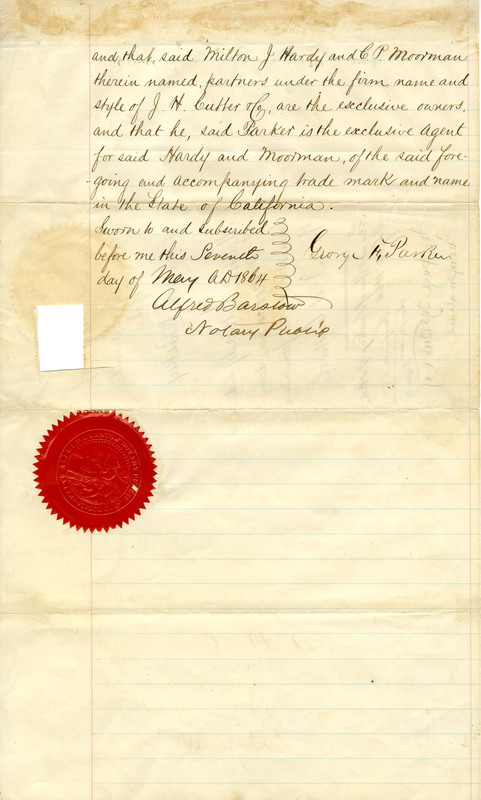 and that said Milton J. Hardy and C. P. Moorman
therein named, partners under the firm name and
style of J. H. Cutter & Co, are the exclusive owners,
and that he, said Parker is the exclusive agent
for said Hardy and Moorman, of the said fore-
-going and accompanying trade mark and name
in the State of California.
Sworn to and subscribed
before me this Seventh
day of May AD 1864
George F. Parker
Alfred Barstow
Notary Public